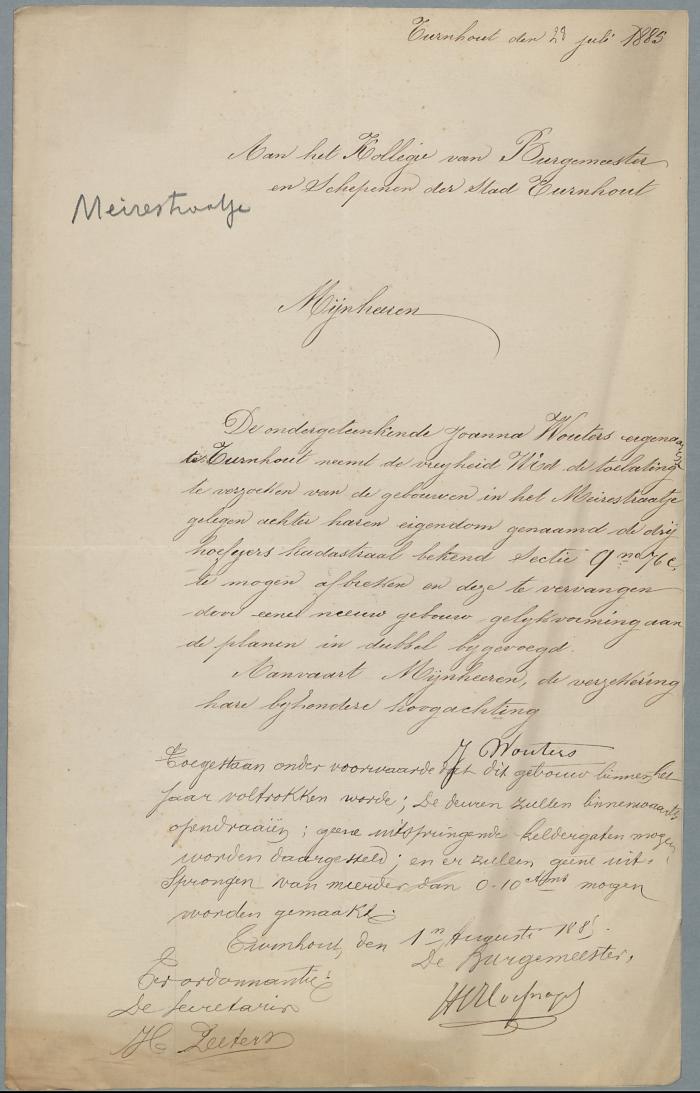 Turnhout den 28 juli 1885
Aan het Kollegie van Burgemeester
en Schepenen der Stad Turnhout
Meirestraatje
Mijnheeren
De ondergeteekende Joanna Wouters eigenaar
te Turnhout neemt de vreyheid UEd de toelating
te verzoeken van de gebouwen in het Meirestraatje
gelegen achter haren eigendom genaamd de drij
hoefyzers kadastraal bekend Sectie
te mogen afbreken en deze te vervangen
door eenen nieuw gebouw gelykvorming aan
de planen in dubbel bygevoegd.
Aanvaart Mijnheeren, de verzekering
hare byzondere hoogachting
J Wouters
Toegestaan onder voorwaarde dat dit gebouw binnen het
jaar voltrokken worde; De deuren zullen binnenwaarts
opendraaiën; geene uitspringende keldergaten mogen
worden daargesteld; en er zullen geene uit-
sprongen van meerder dan 0-10 mogen
worden gemaakt.
Turnhout, den 1n Augusti 1885.
De Burgemeester,
Per ordonnantie:
De Secretaris